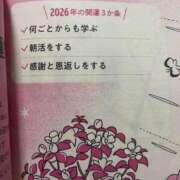 2026年の開運3か条
何ごとからも学ぶ
朝活をする
感謝と恩返しをする